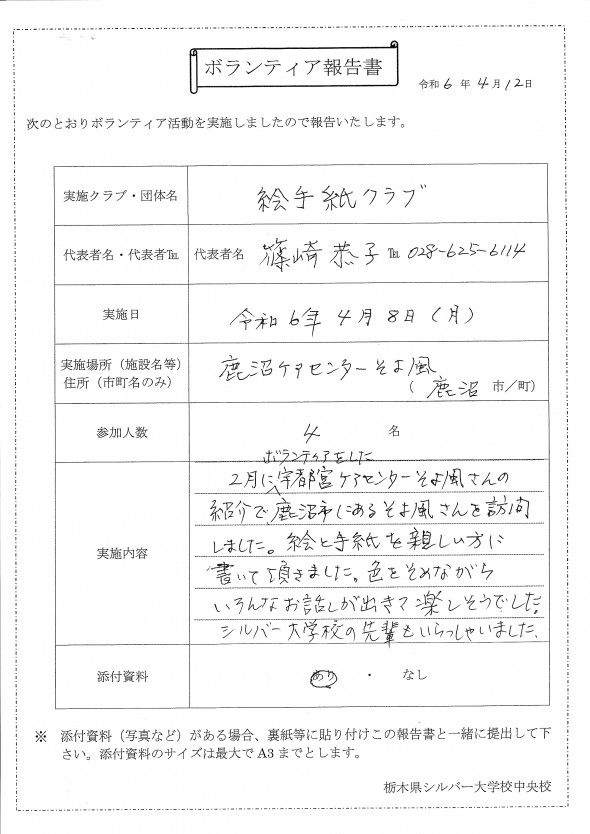 ボランティア報告書
令和 6 年 4 月 12 日
次のとおりボランティア活動を実施しましたので報告いたします。
実施クラブ・団体名 絵手紙クラブ
代表者名・代表者℡ 代表者名 篠崎 恭子 ℡ 028-625-6114
実施日 令和 6年 4月 8日 (月)
実施場所(施設名等) 鹿沼ケアセンターそよ風
住所(市町名のみ) ( 鹿沼 市/町)
参加人数 4 名
ボランティアをした
2月に宇都宮ケアセンターそよ風さんの
紹介で、鹿沼市にあるそよ風さんを訪問
しました。絵と手紙を親しい方に
実施内容
書いて頂きました。色をそめながら
いろんなお話しが出きて楽しそうでした。
シルバー大学校の先輩もいらっしゃいました。
添付資料 あり ・ なし
※ 添付資料(写真など)がある場合、裏紙等に貼り付けこの報告書と一緒に提出して下
さい。添付資料のサイズは最大で A3 までとします。
栃木県シルバー大学校中央校